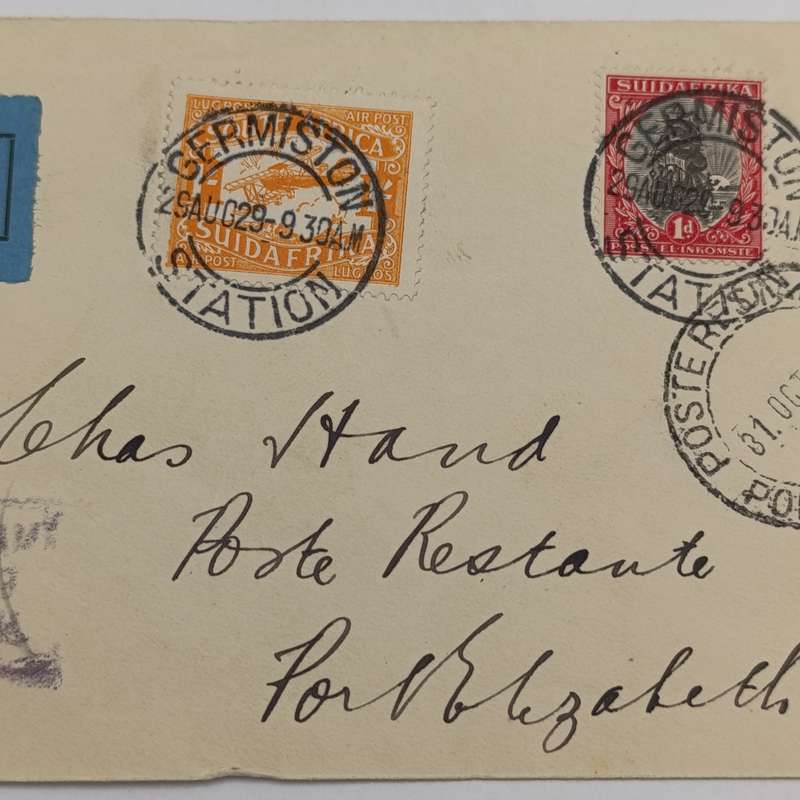 LUGPOS AIR POST
SUIDAFRIKA
POST LUGPOS
GERMISTON
29AUG29-9.30AM
STATION
SUIDAFRIKA
1d
POSSEEL-INKOMSTE
GERMISTON
29AUG29-9.30AM
STATION
POSTE RE
31.OCT
PO
Chas Hand
Poste Restante
Port Elizabeth